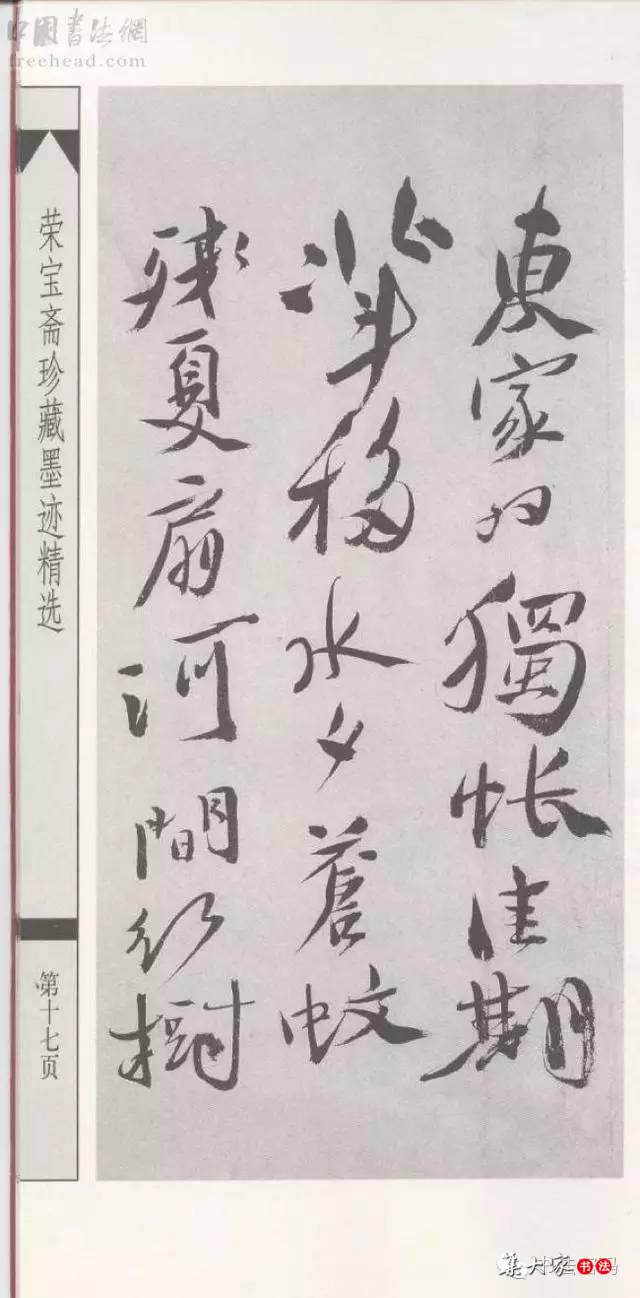 中國書法網
freehead.com
荣宝斋珍藏墨迹精选
第十七页
東家獨帳佳期
北斗移水夕蒼蚊
殘夏扇河間紅樹
集大家书法